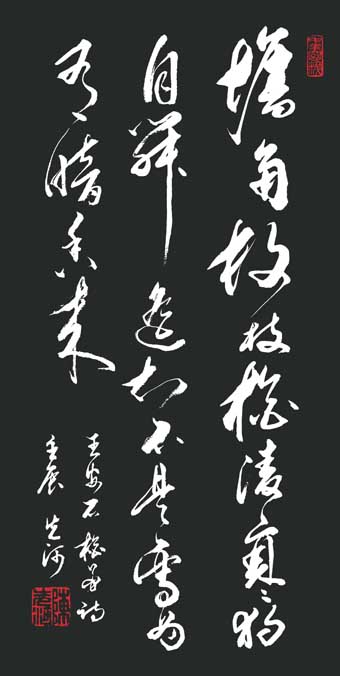 墻角数枝梅凌寒独
自開遥知不是雪为
有暗香来
王安石梅花诗
壬辰